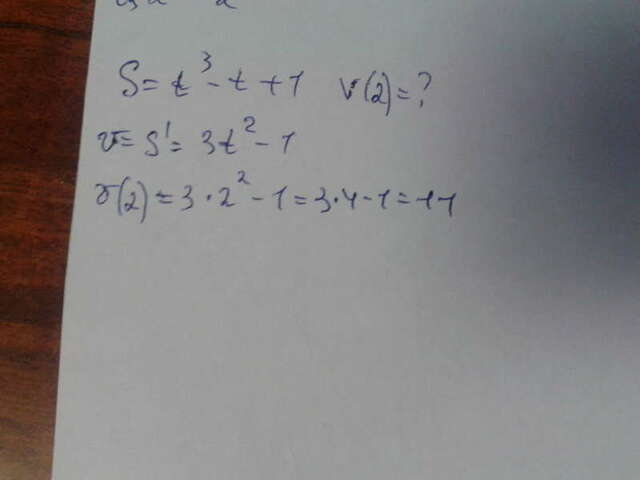 S = t³ - t + 1 v(2) = ?
v = S' = 3t² - 1
v(2) = 3 · 2² - 1 = 3 · 4 - 1 = 11